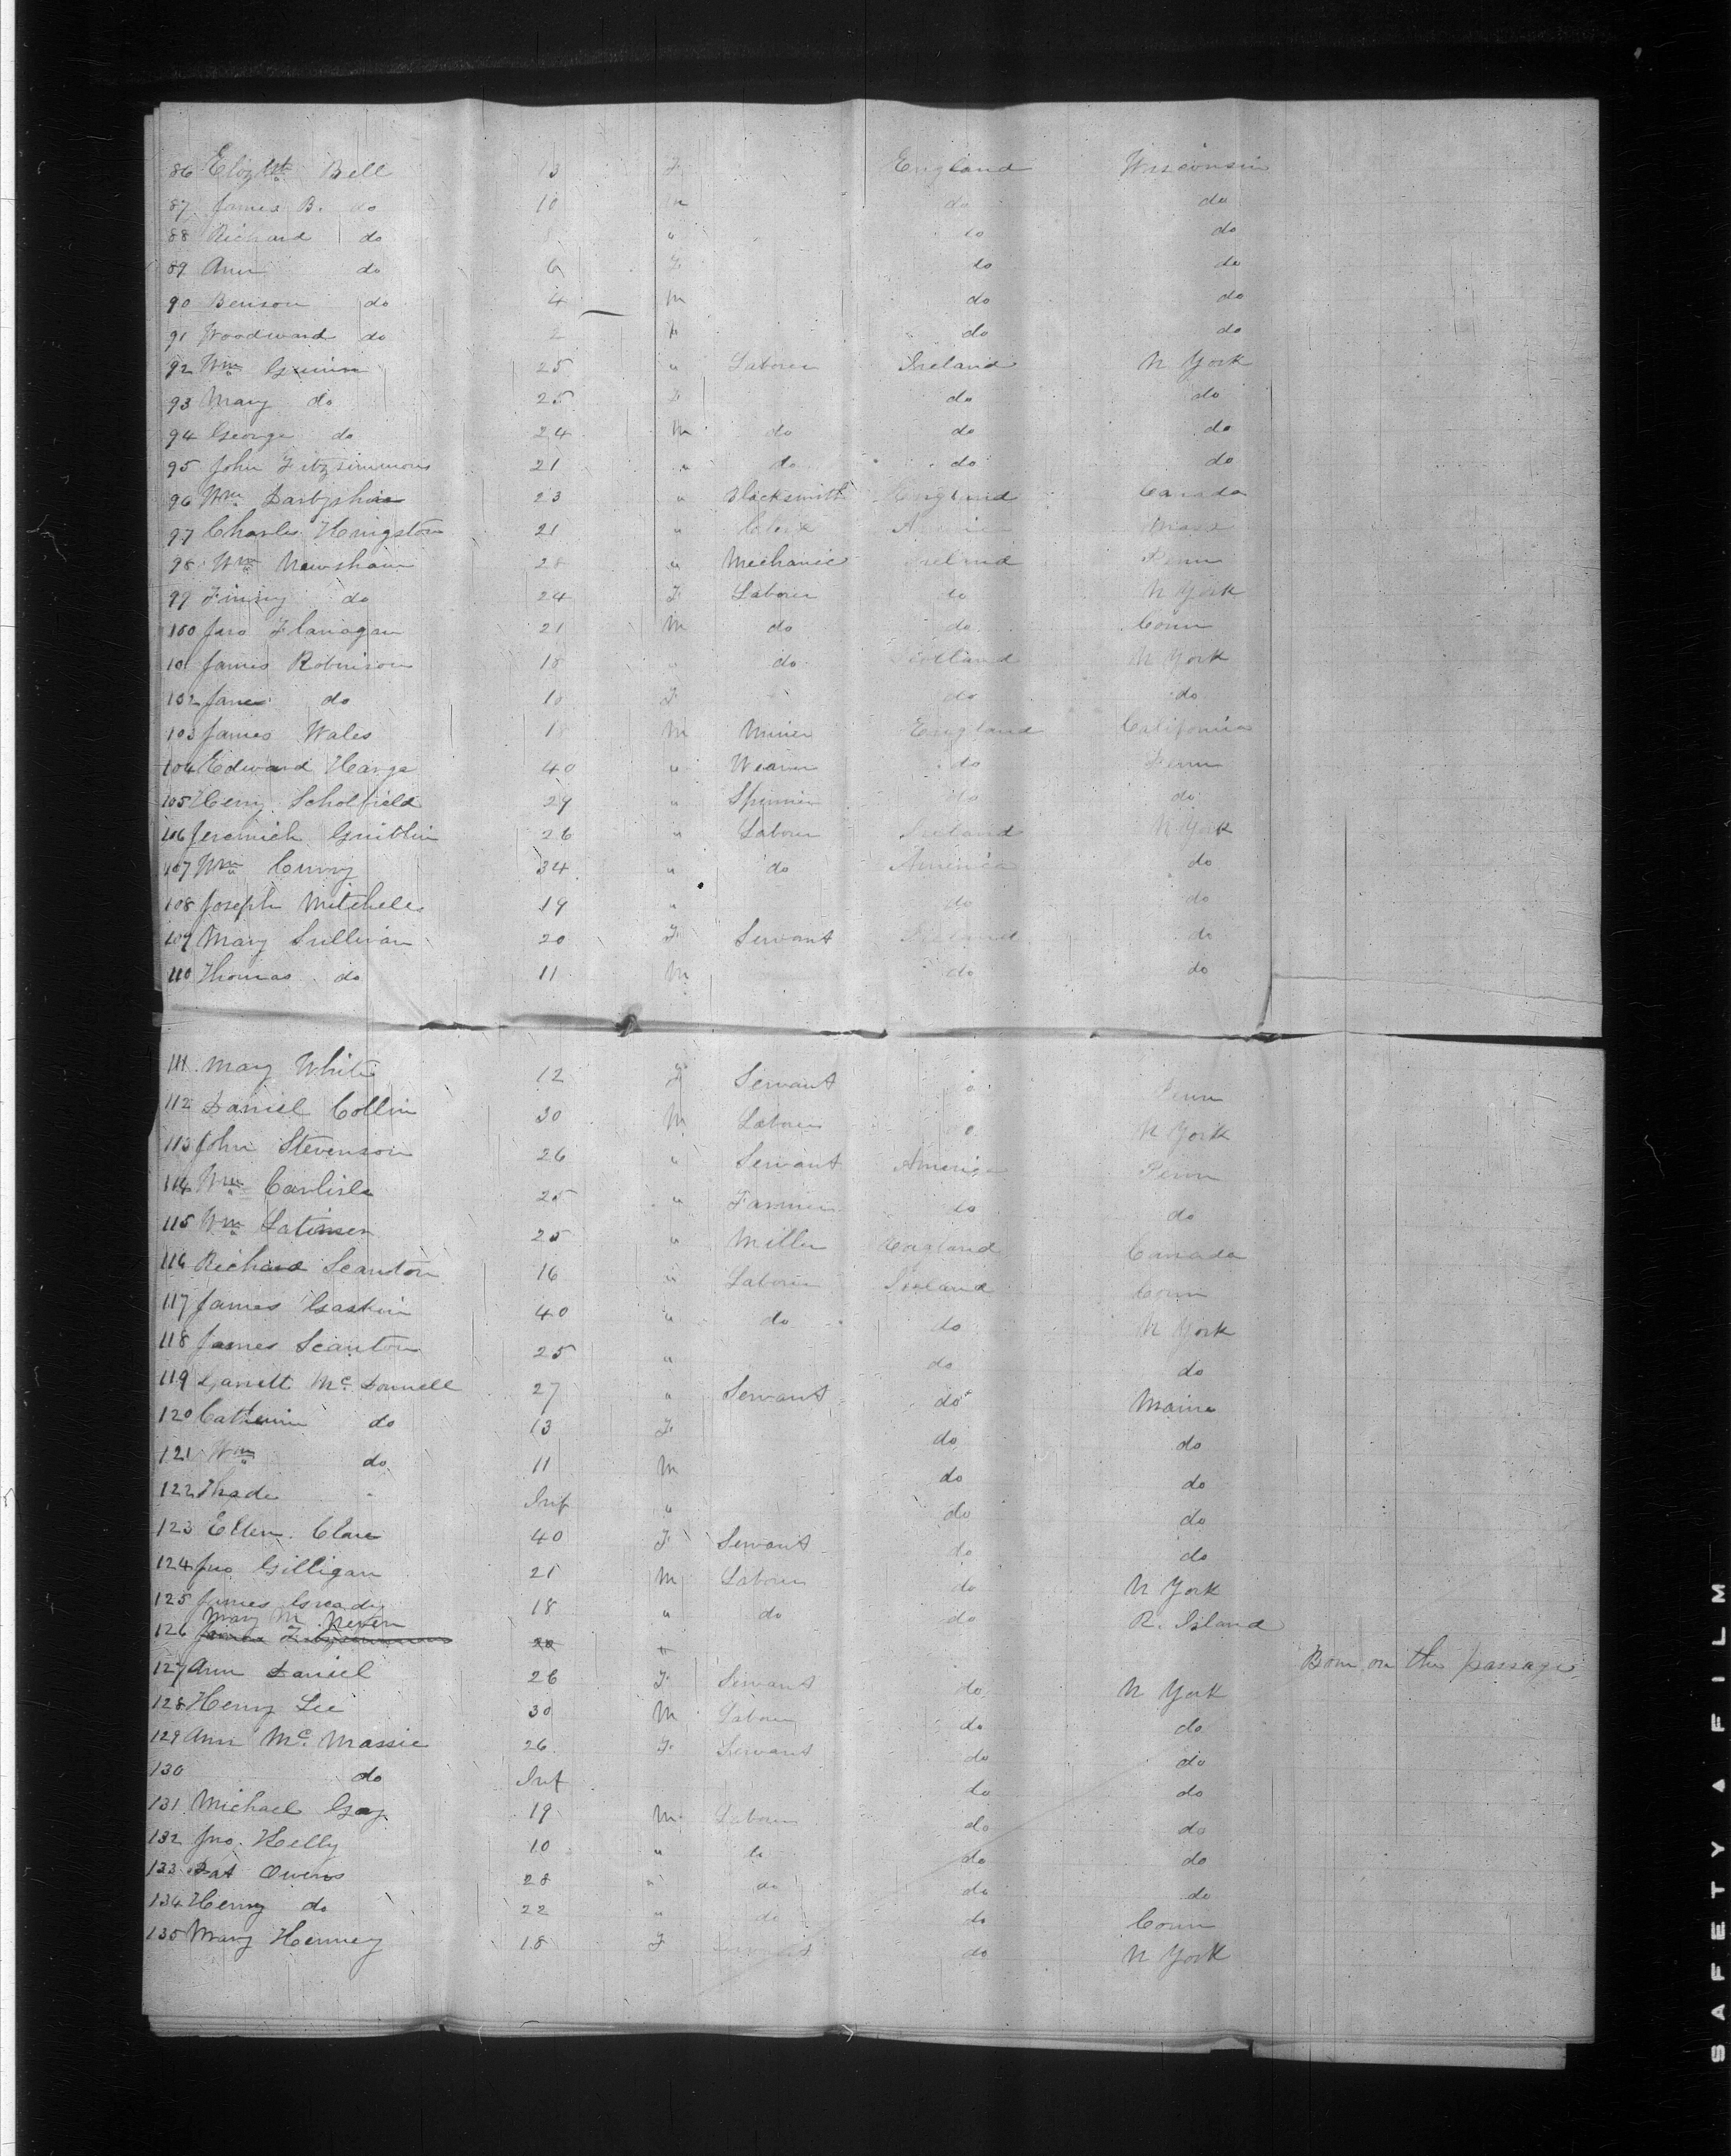 86 Elizbth Bell 13 F England Wisconsin
87 James B. do 10 m do do
88 Richard do 8 " do do
89 Ann do 6 F do do
90 Benson do 4 m do do
91 Woodward do 2 do do
92 Wm 25 " Laborer Ireland N York
93 Mary do 25 F do do
94 George do 24 M do do do
95 John Fitzsimmons 21 " do do do
96 Wm Darbyshire 23 " Blacksmith England Canada
97 Charles 21 " Clerk Mass
98 Wm Newsham 28 " Mechanic Ireland Penn
99 do 24 F Laborer do N York
100 Jno Flanagan 21 M do do Conn
101 James Robinson 18 " do Scotland N York
102 Jane do 18 F do do
103 James Wales 18 M Miner England California
104 Edward 40 " Weaver do Penn
105 Henry Scholfield 29 " Spinner do do
106 Jeremieh 26 " Labour Ireland N York
107 Wm 34 " do America do
108 Joseph Mitchell 19 " do do
109 Mary Sullivan 20 F Servant Ireland do
110 Thomas do 11 M do do
111 Mary White 12 F Servant Penn
112 Daniel Collin 30 M Laborer N York
113 John Stevenson 26 " Servant America Penn
114 Wm Carlisle 25 " Farmer do do
115 Wm 25 " Miller England Canada
116 Richard Scanton 16 " Laborer Ireland Conn
117 James Gaskin 40 " do do N York
118 James Scanton 25 " do do
119 Garrett Mc Donnell 27 " Servant do Maine
120 Catherine do 13 F do do
121 Wm do 11 M do do
122 Thade " Inf " do do
123 Ellen Clare 40 F Servant do do
124 Jno Gilligan 21 M Labour do N York
125 James Gready 18 " do do R. Island
Mary M Neven
126 20 " Born on the passage
127 Ann Daniel 26 F Servant do N York
128 Henry Lee 30 M Labour do do
129 Ann Mc Massie 26 F Servant do do
130 do Inf do do
131 Michael Gay 19 M Labour do do
132 Jno. Kelly 10 " do do do
133 Pat Owens 28 " do do do
134 Henry do 22 " do do Conn
135 Mary Henney 18 F Servant do N York
SAFETY FILM